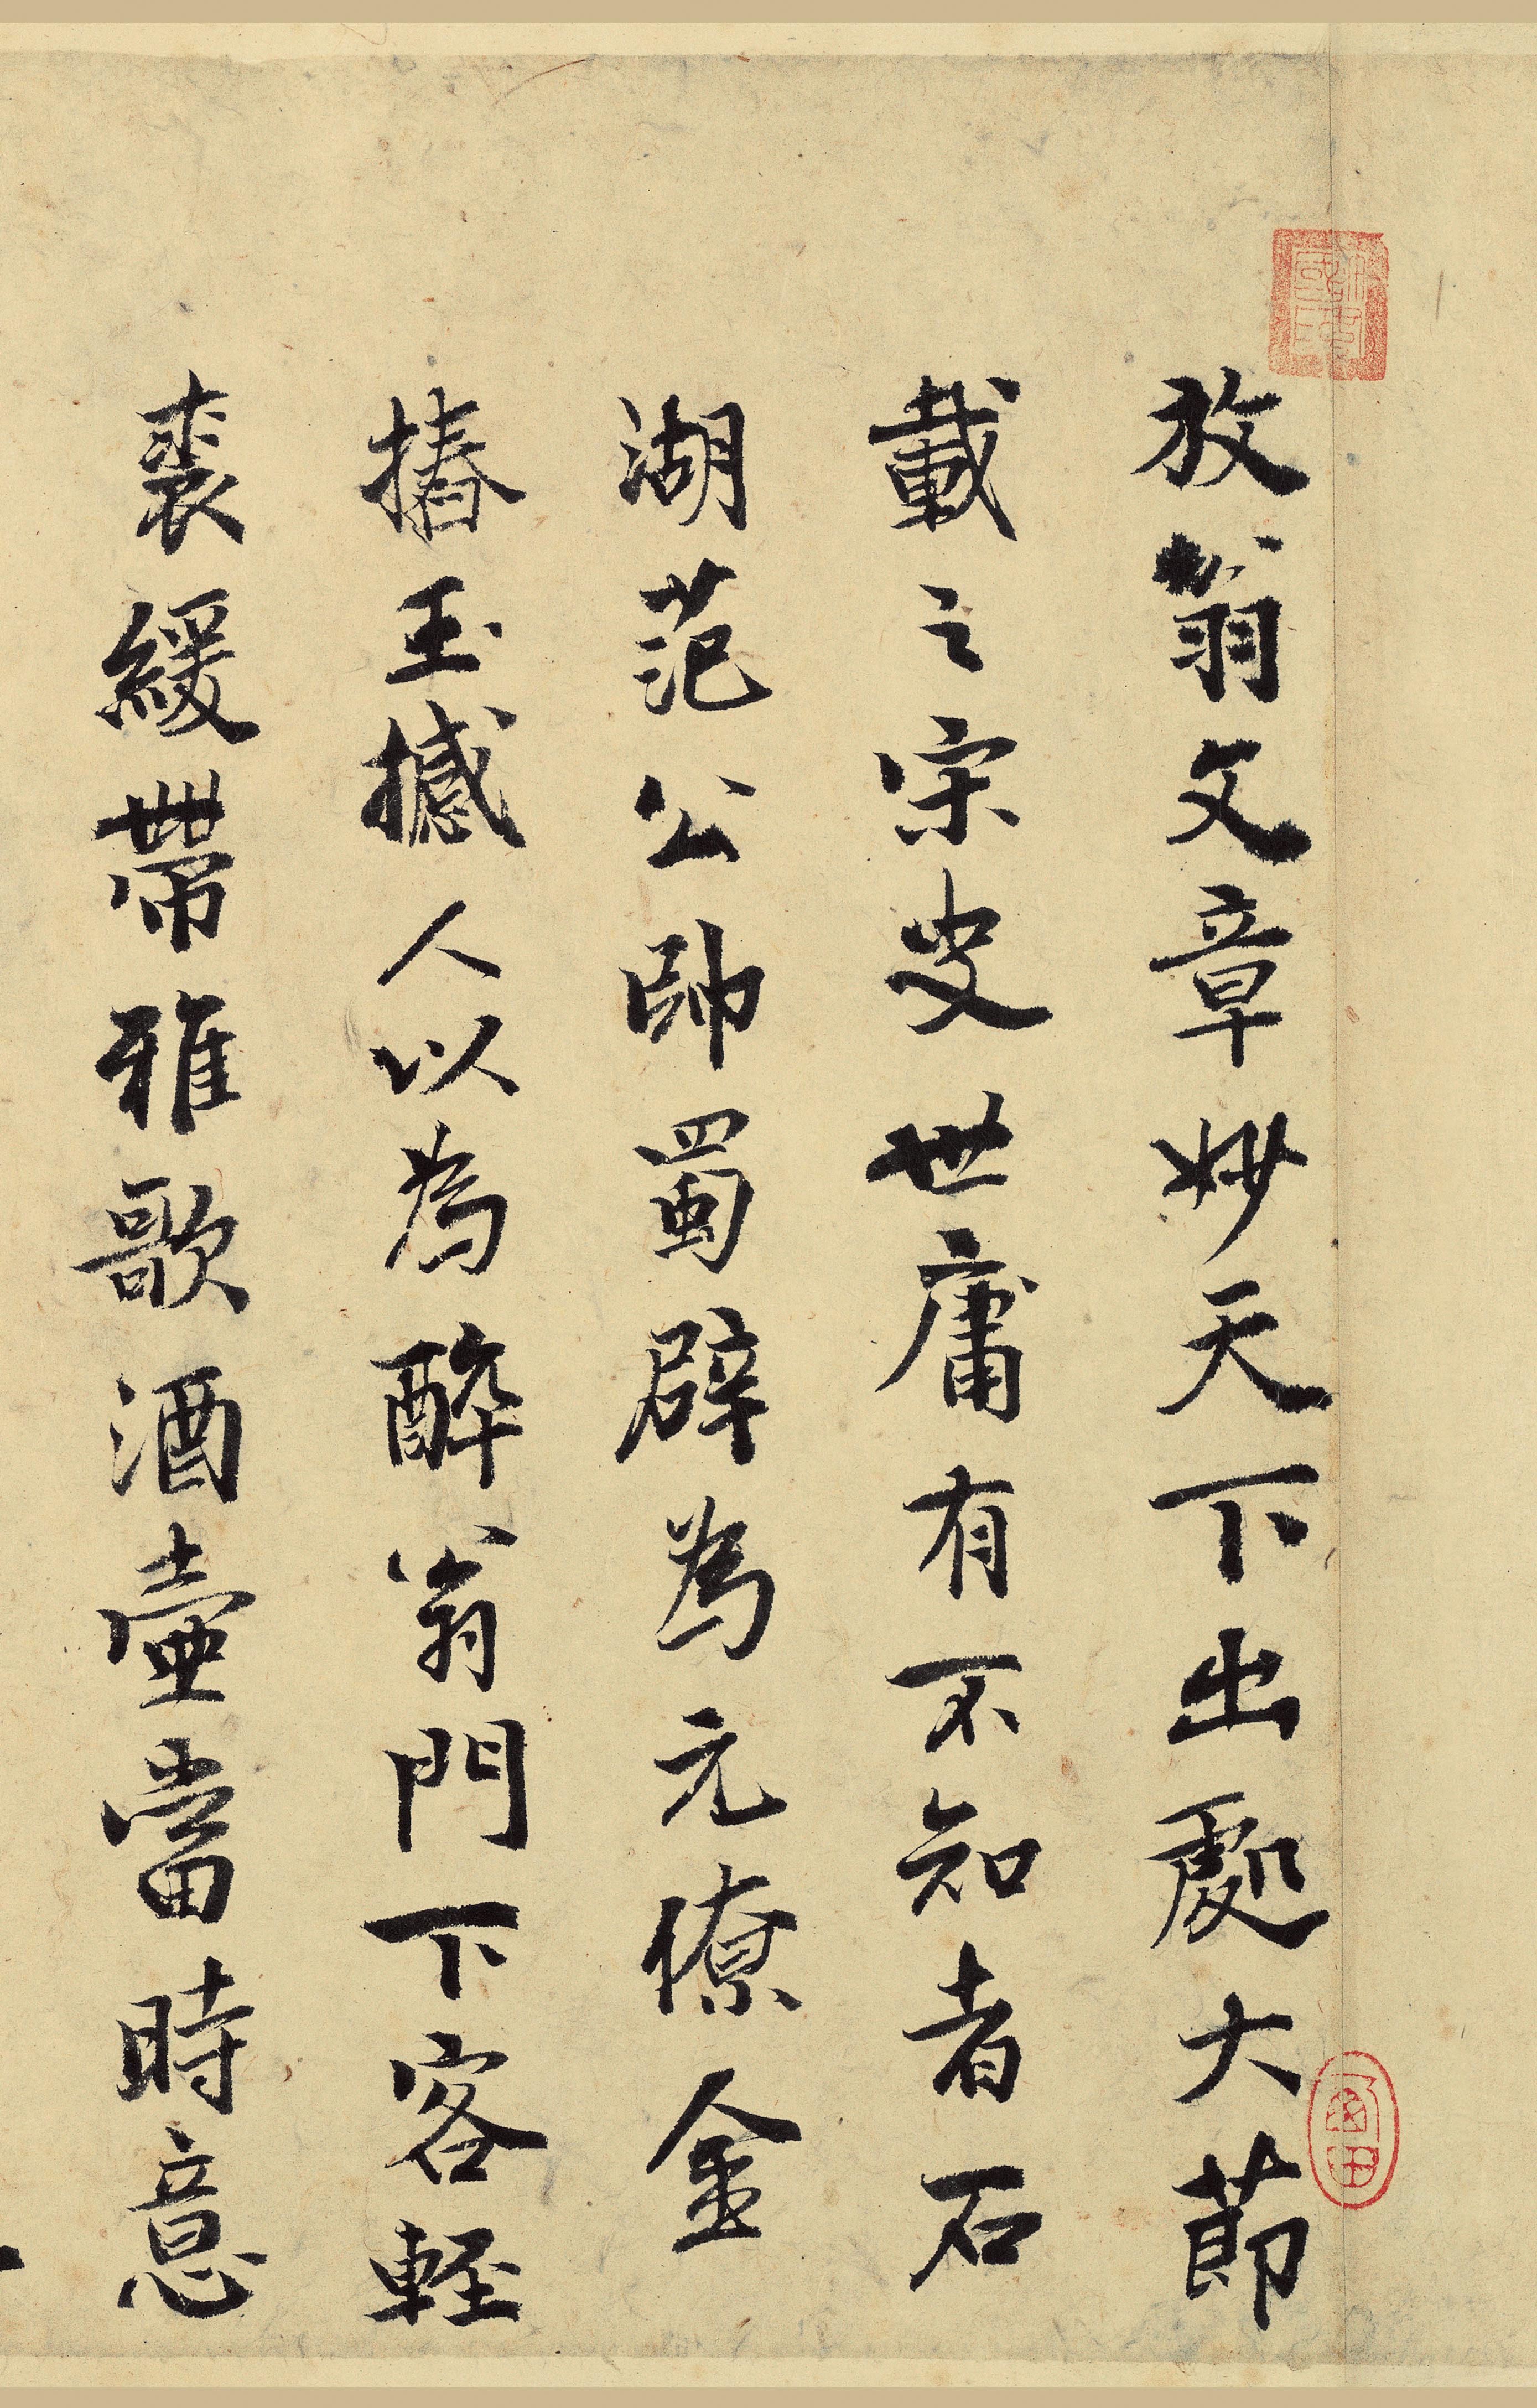 放翁文章妙天下出處大節
載之宋史世庸有不知者石
湖范公帥蜀辟為元僚金
摏玉撼人以為醉翁門下客輕
裘緩帶雅歌酒壺當時意